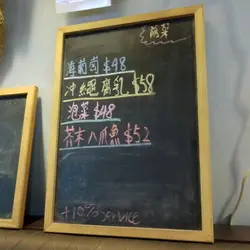 前菜
海葡萄 $48
沖繩腐乳 $58
泡菜 $48
芥末八爪魚 $52
+10% SERVICE